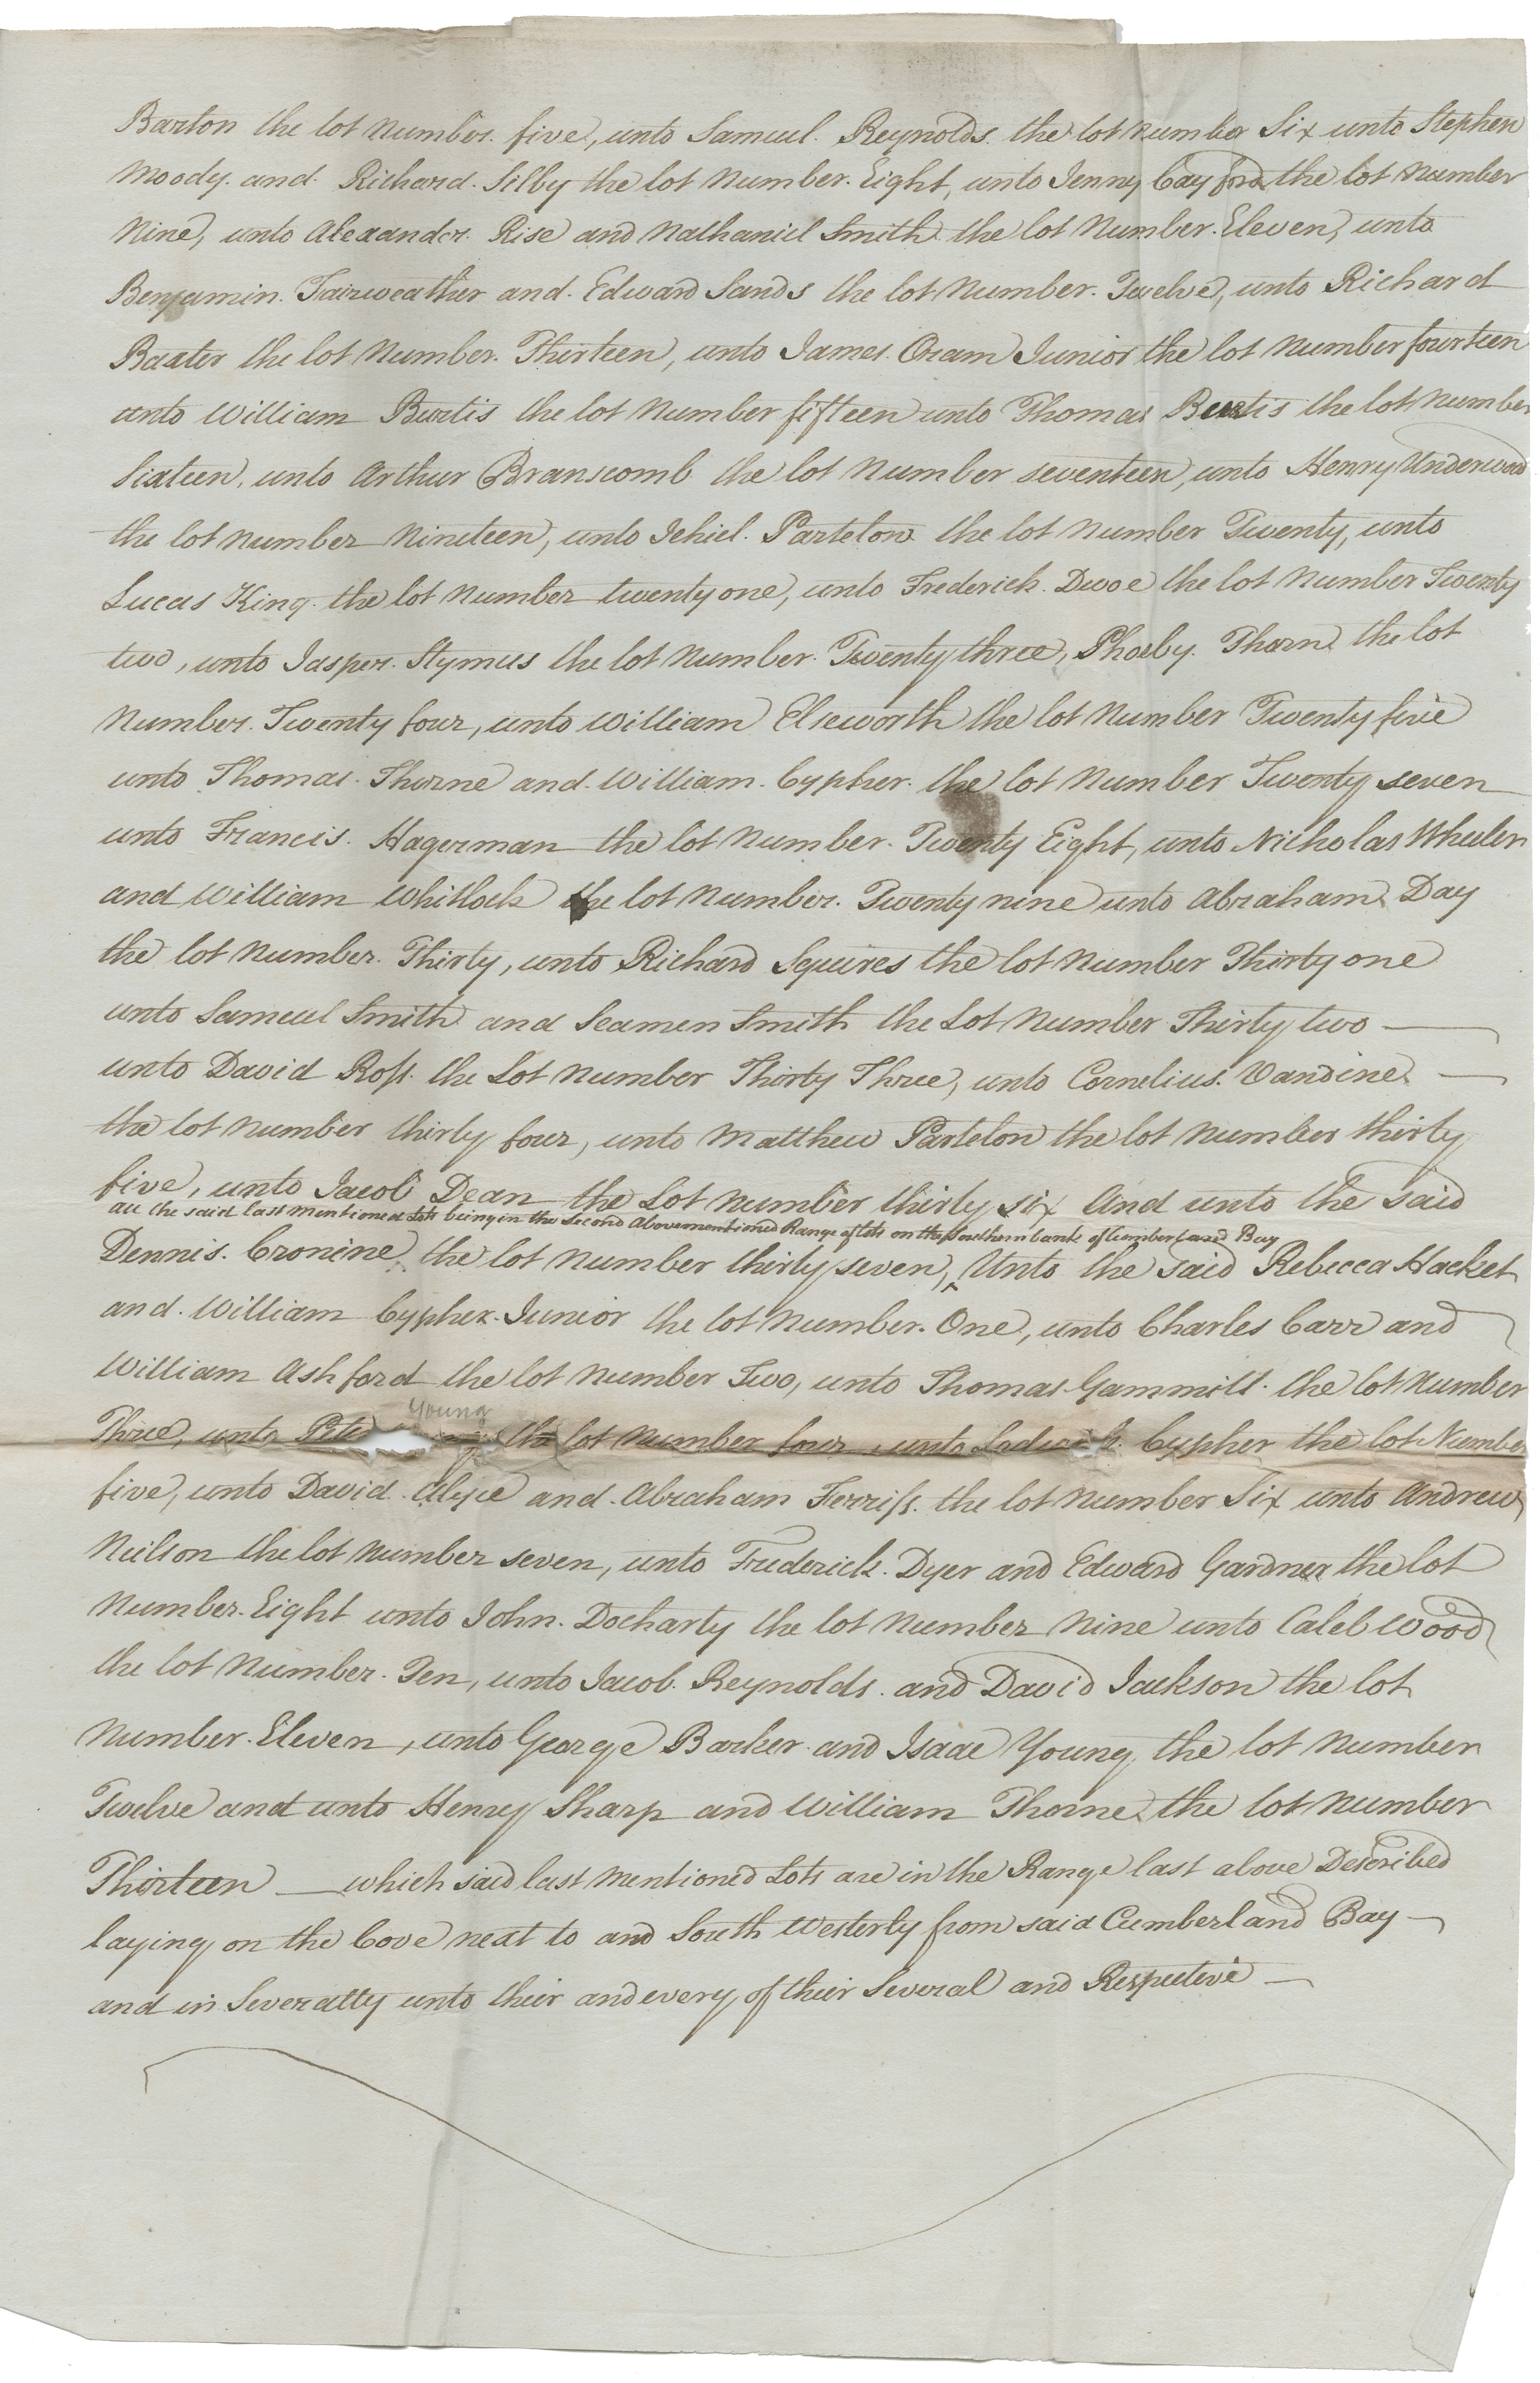 Barton the lot number five, unto Samuel Reynolds the lot number Six unto Stephen
Moody and Richard Silby the lot Number Eight, unto Jenny Cayford the lot Number
Nine, unto Alexander Rise and Nathaniel Smith the lot Number Eleven, unto
Benjamin Fairweather and Edward Sands the lot Number Twelve, unto Richard
Baxter the lot Number Thirteen, unto James Oram Junior the lot Number fourteen
unto William Burtis the lot Number fifteen unto Thomas Burtis the lot Number
Sixteen, unto Arthur Branscomb the lot Number seventeen, unto Henry Underwood
the lot number Nineteen, unto Jehiel Partelow the lot number Twenty, unto
Lucas King the lot Number twenty one, unto Frederick Dvoe the lot Number Twenty
two, unto Jasper Stymus the lot Number Twenty three, Phoeby Thorn the lot
Number Twenty four, unto William Elseworth the lot Number Twenty five
unto Thomas Thorne and William Cypher the lot Number Twenty seven
unto Francis Hagerman the lot Number Twenty Eight, unto Nicholas Wheeler
and William Whitlock the lot Number Twenty nine unto Abraham Day
the lot Number Thirty, unto Richard Squires the lot Number Thirty one
unto Samuel Smith and Seamen Smith the Lot Number Thirty two
unto David Ross the Lot Number Thirty Three, unto Cornelius Vandine
the lot Number thirty four, unto Matthew Partelow the lot Number thirty
five, unto Jacob Dean the Lot Number thirty six And unto the said
all the said last mentioned Lots being in the Second abovementioned Range of lots on the Southern bank of Cumberland Bay
Dennis Cronine the lot Number thirty seven, Unto the said Rebecca Hacket
and William Cypher Junior the lot Number One, unto Charles Carr and
William Ashford the lot Number Two, unto Thomas Gammill the lot Number
Young
Three, unto the lot Number four, unto Cypher the lot Number
five, unto David Alpe and Abraham Ferriss the lot Number Six unto Andrew
Neilson the lot Number seven, unto Frederick Dyer and Edward Gardner the lot
Number Eight unto John Docharty the lot Number Nine unto Caleb Wood
the lot Number Ten, unto Jacob Reynolds and David Jackson the lot
Number Eleven, unto George Barker and Isaac Young the lot Number
Twelve and unto Henry Sharp and William Thorne the lot Number
Thirteen which said last Mentioned Lots are in the Range last above Described
laying on the Cove next to and South Westerly from said Cumberland Bay
and in Severalty unto their and every of their Several and Respective